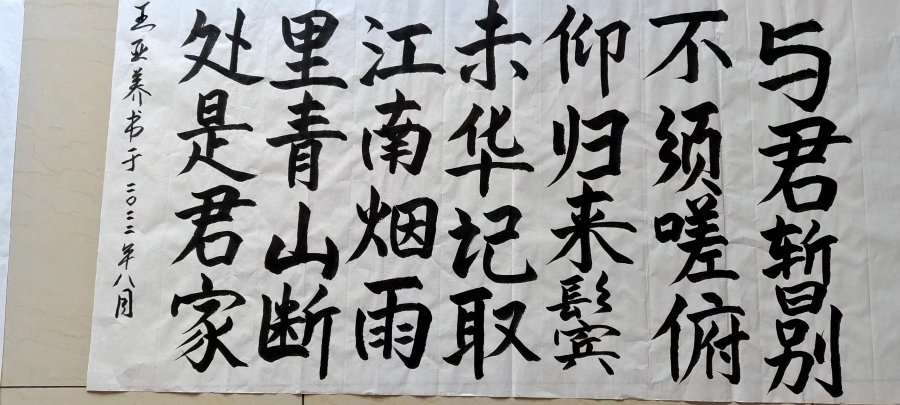 与君暂别
不须嗟俯
仰归来鬓
未华记取
江南烟雨
里青山断
处是君家
王亚养书于二〇二二年八月